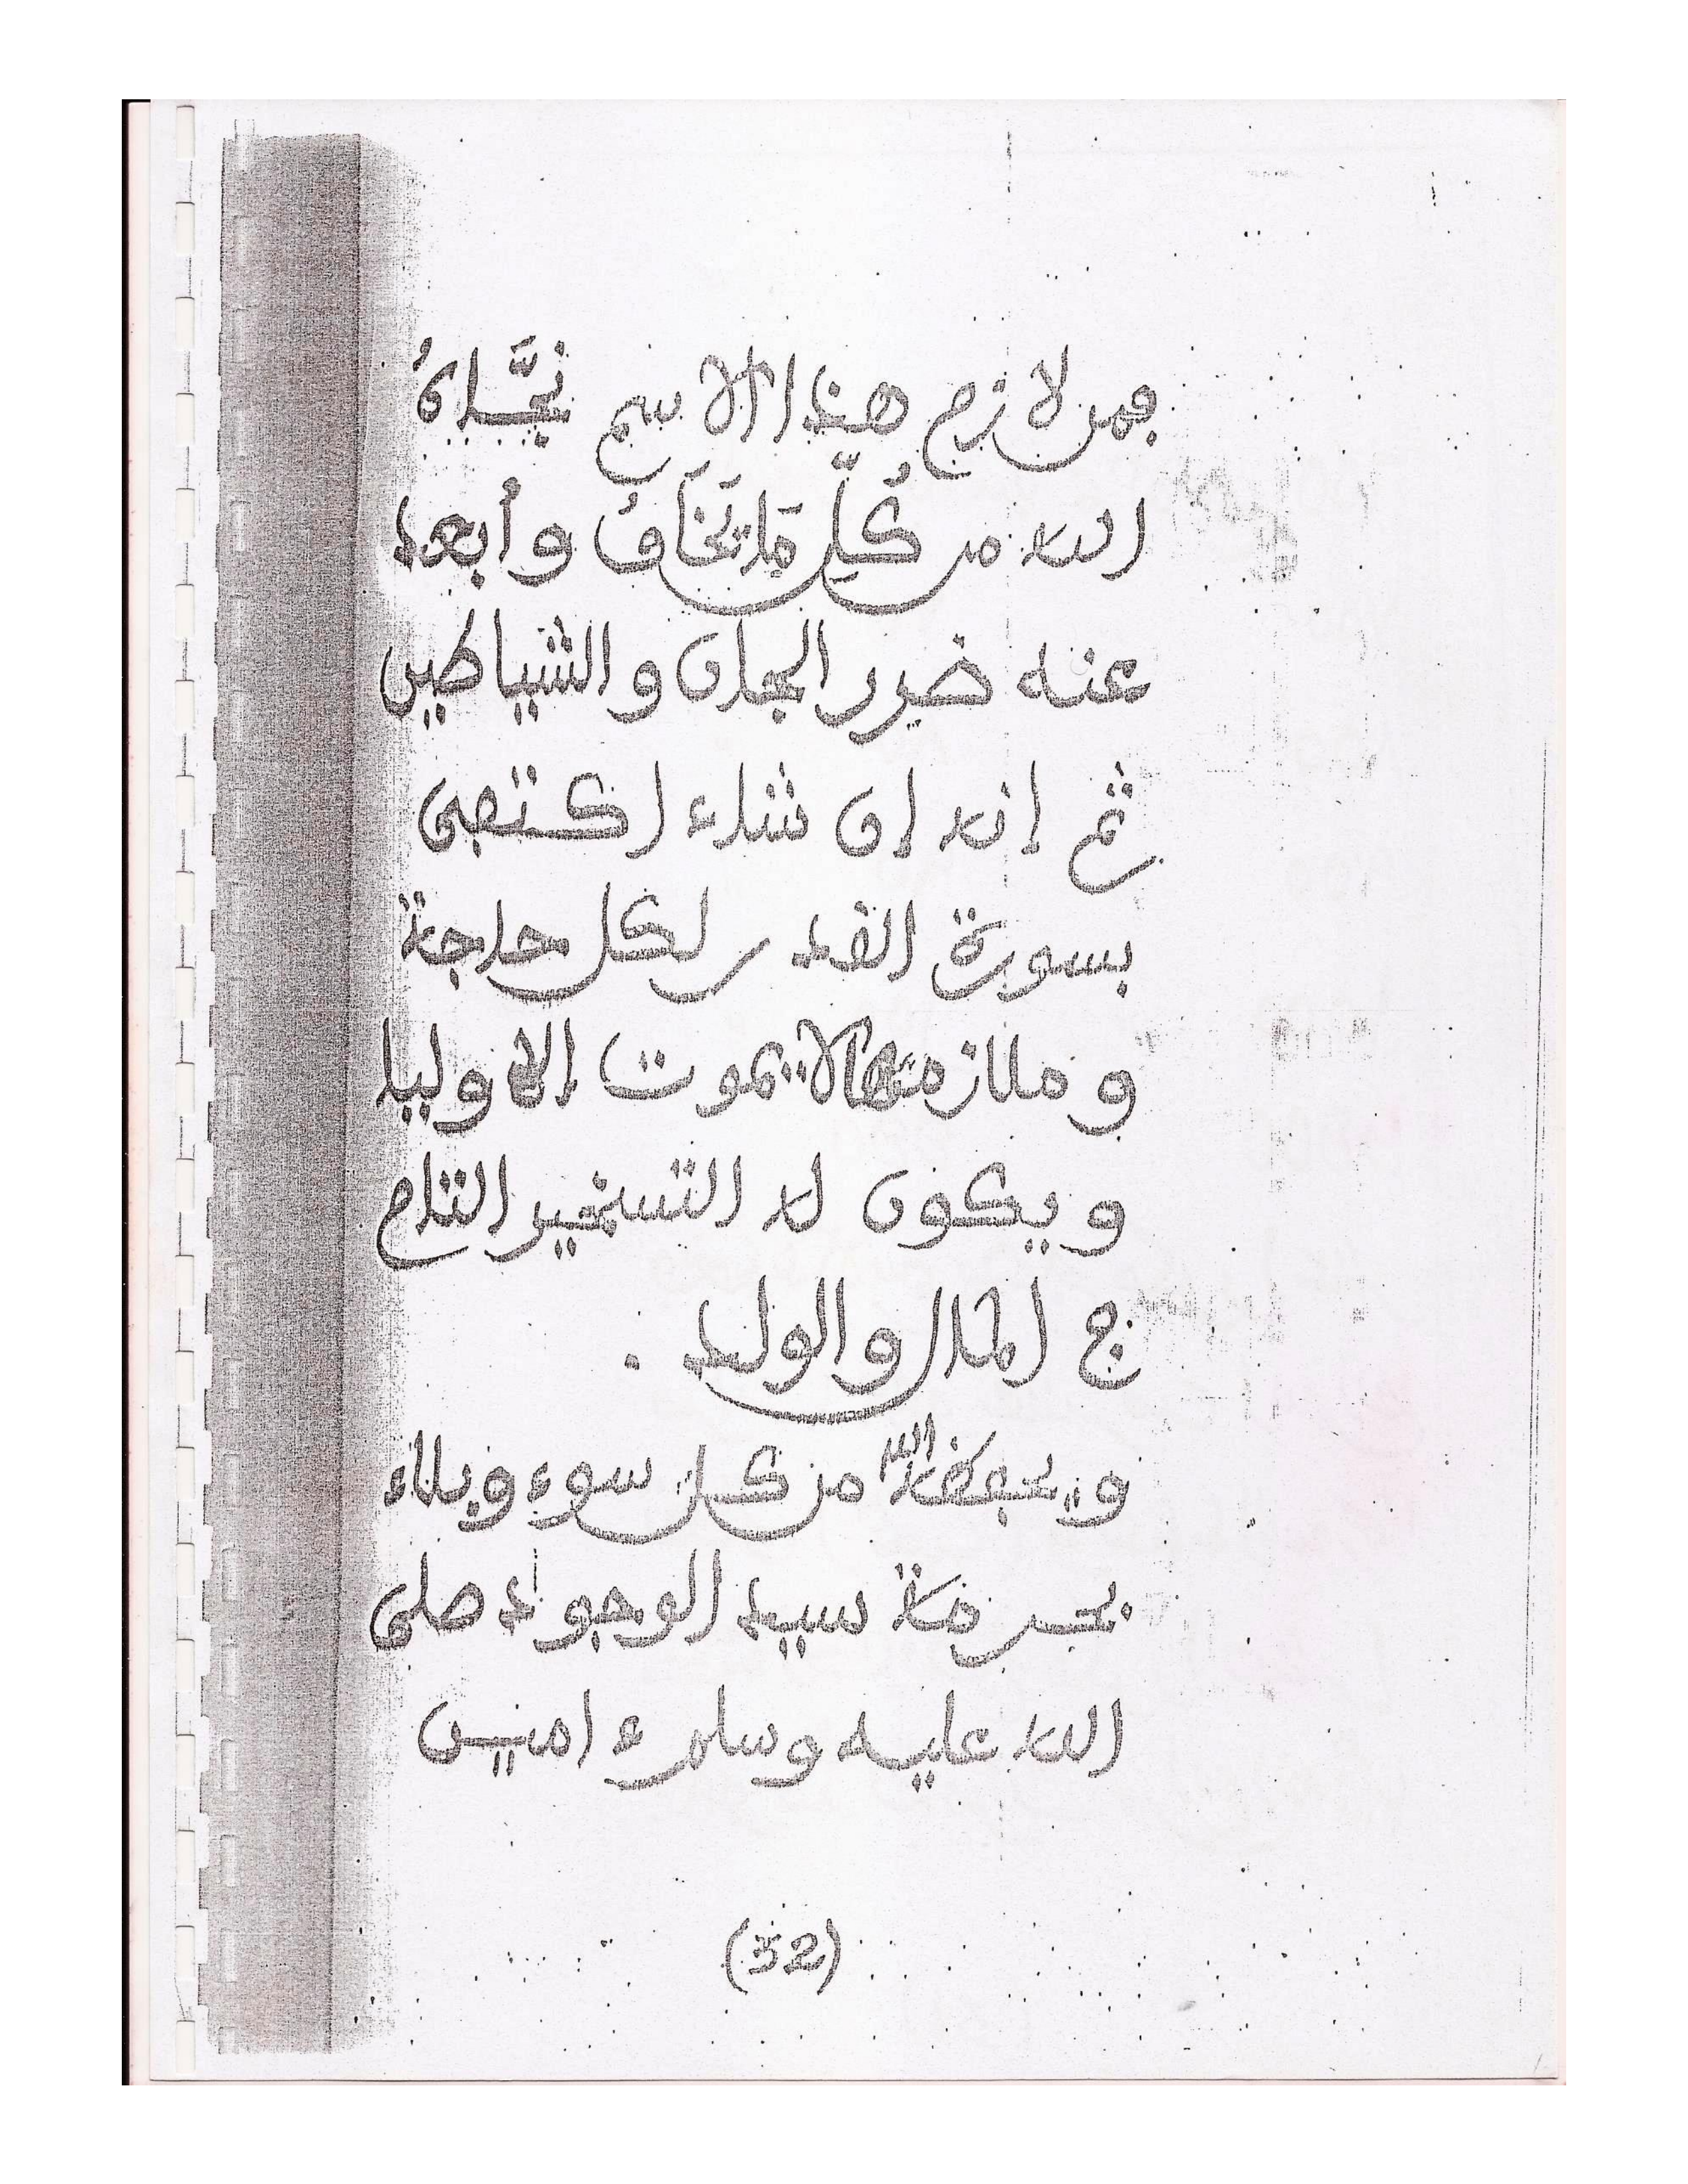 فمن لازم هذا الاسم نَجَّاهُ
الله من كُلِّ مَا تَخَافُ وأُبعد
عنه ضرر الجان والشياطين
ثم إنه إن شاء اكتفى
بسورة القدر لكل حاجة
وملازمتها لا يموت إلا وليا
ويكون له التسخير التام
في المال والولد .
ويحفظه الله من كل سوء وبلاء
بحرمة سيد الوجود صلى
الله عليه وسلم ءامين
(52)